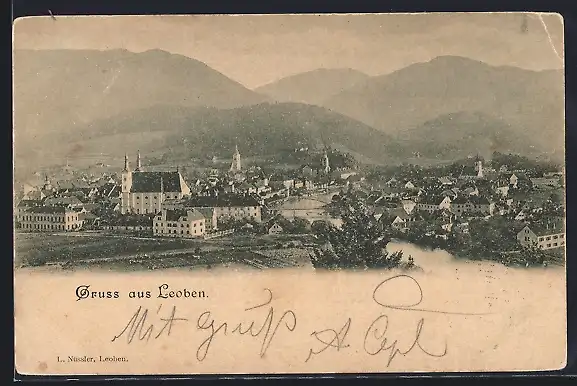 Gruss aus Leoben.
Mit Gruß A.
L. Nüssler, Leoben.